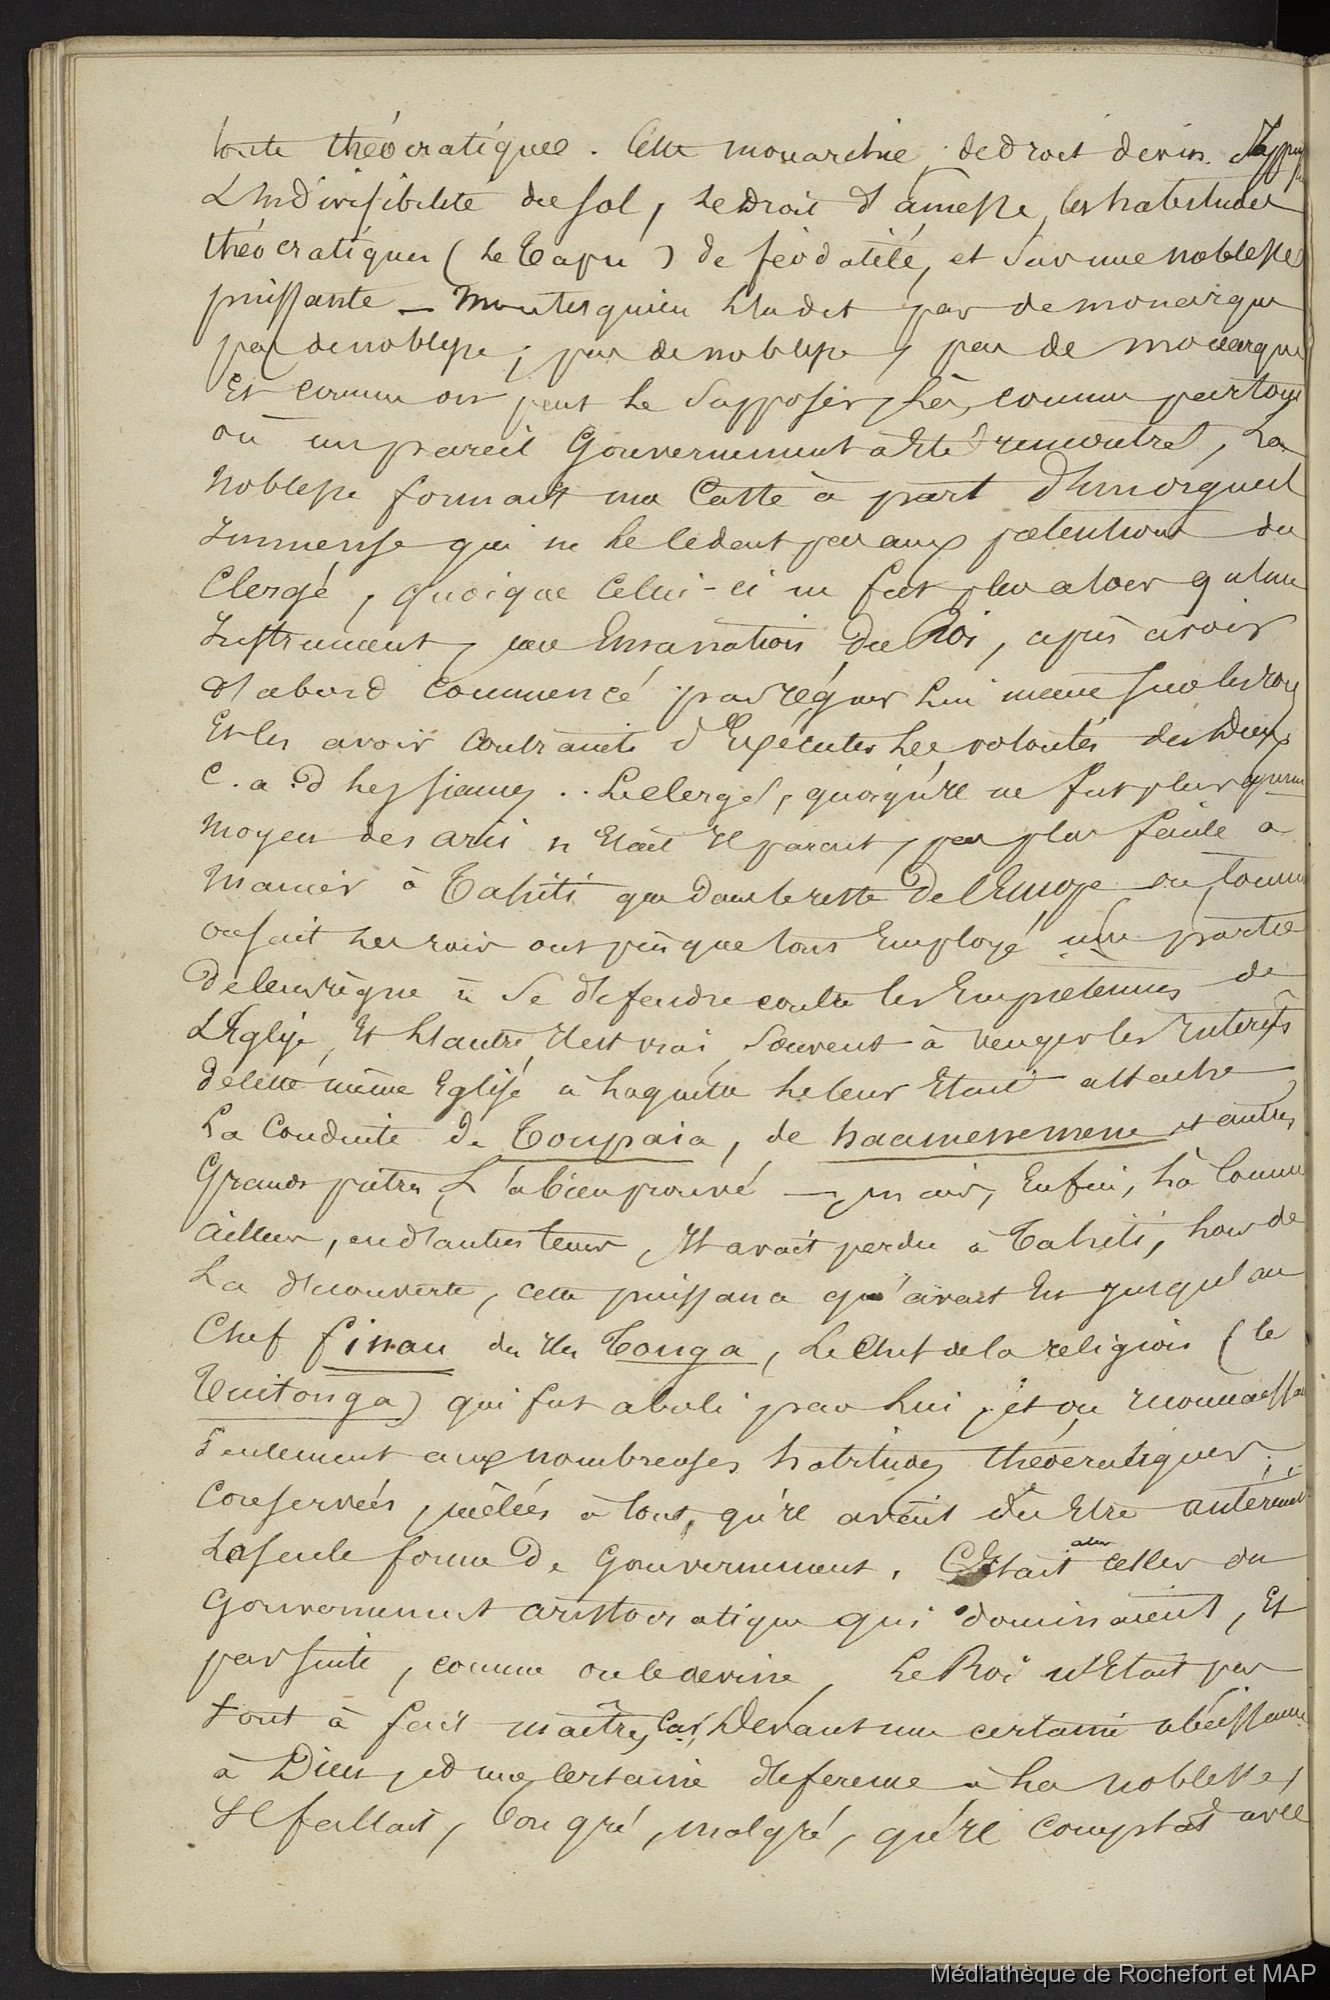 toute théocratique. Cette monarchie, de droit divin, s'appuy
L'Indivisibilité du sol, le Droit d'ainesse, les habitudes
théocratiques (le Tapu) de féodalité, et sur une noblesse
puissante — Montesquieu l'a dit pas de monarque
pas de noblesse; pas de noblesse, pas de monarque
Et comme on peut le supposer, là, comme partout
où un pareil Gouvernement a Eté rencontré, la
Noblesse formait une Caste à part d'un orgueil
Immense qui ne le cédait pas aux prétentions du
Clergé, quoique Celui-ci ne fut plus alors qu'un
Instrument, une Emanation du Roi, après avoir
d'abord commencé par régner lui même sur les rois
Et les avoir contraints d'Exécuter les volontés des Dieux
C.a.d les siennes.. Le clergé, quoiqu'il ne fut plus qu'un
Moyen des arii n'Etait Il parait, pas plus facile a
Manier à Tahiti que dans le reste De l'Europe où, comme
on sait les rois ont presque tous Employé une partie
De leur règne à Se défendre contre les Empiétements de
L'Eglise, Et l'autre, Il est vrai, Souvent à venger les Interêts
de cette même Eglise à laquelle le leur Etait attaché
La Conduite de Toupaia, de haamenemene et autres
Grands prêtres, l'a bien prouvé — mais, Enfin, là comme
ailleurs, en d'autres tems, Il avait perdu à Tahiti, lors de
La découverte, cette puissance qu'avait Eu jusqu'au
Chef finau des Iles Tonga, Le Chef de la religion (le
Tuitonga) qui fut aboli par lui, et on reconnaissait
Seulement aux nombreuses habitudes théocratiques
Conservées, mêlées à tout, qu'il avait du Etre antérieurt
La seule forme De Gouvernement. C'Etait alors celles du
Gouvernement aristocratique qui dominaient, Et
par suite, comme on le devine, Le Roi n'Etait pas
tout à fait maître, Car, Devant une certaine obéissance
à Dieu, et une certaine déférence à la noblesse,
Il fallait, bon gré, malgré, qu'il comptât avec
Médiathèque de Rochefort et MAP